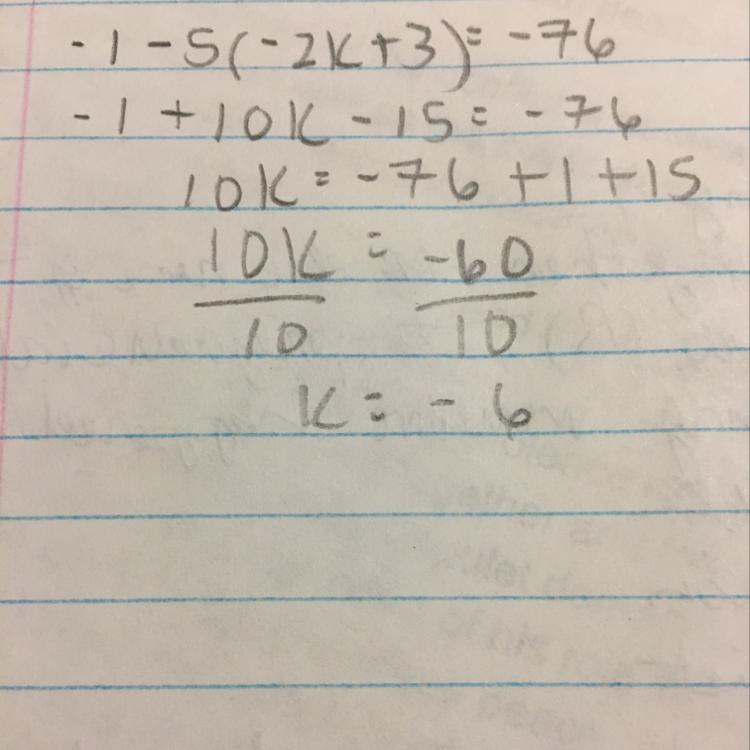 -1-5(-2k+3)=-76
-1+10k-15=-76
10k=-76+1+15
10k = -60
10 10
k=-6